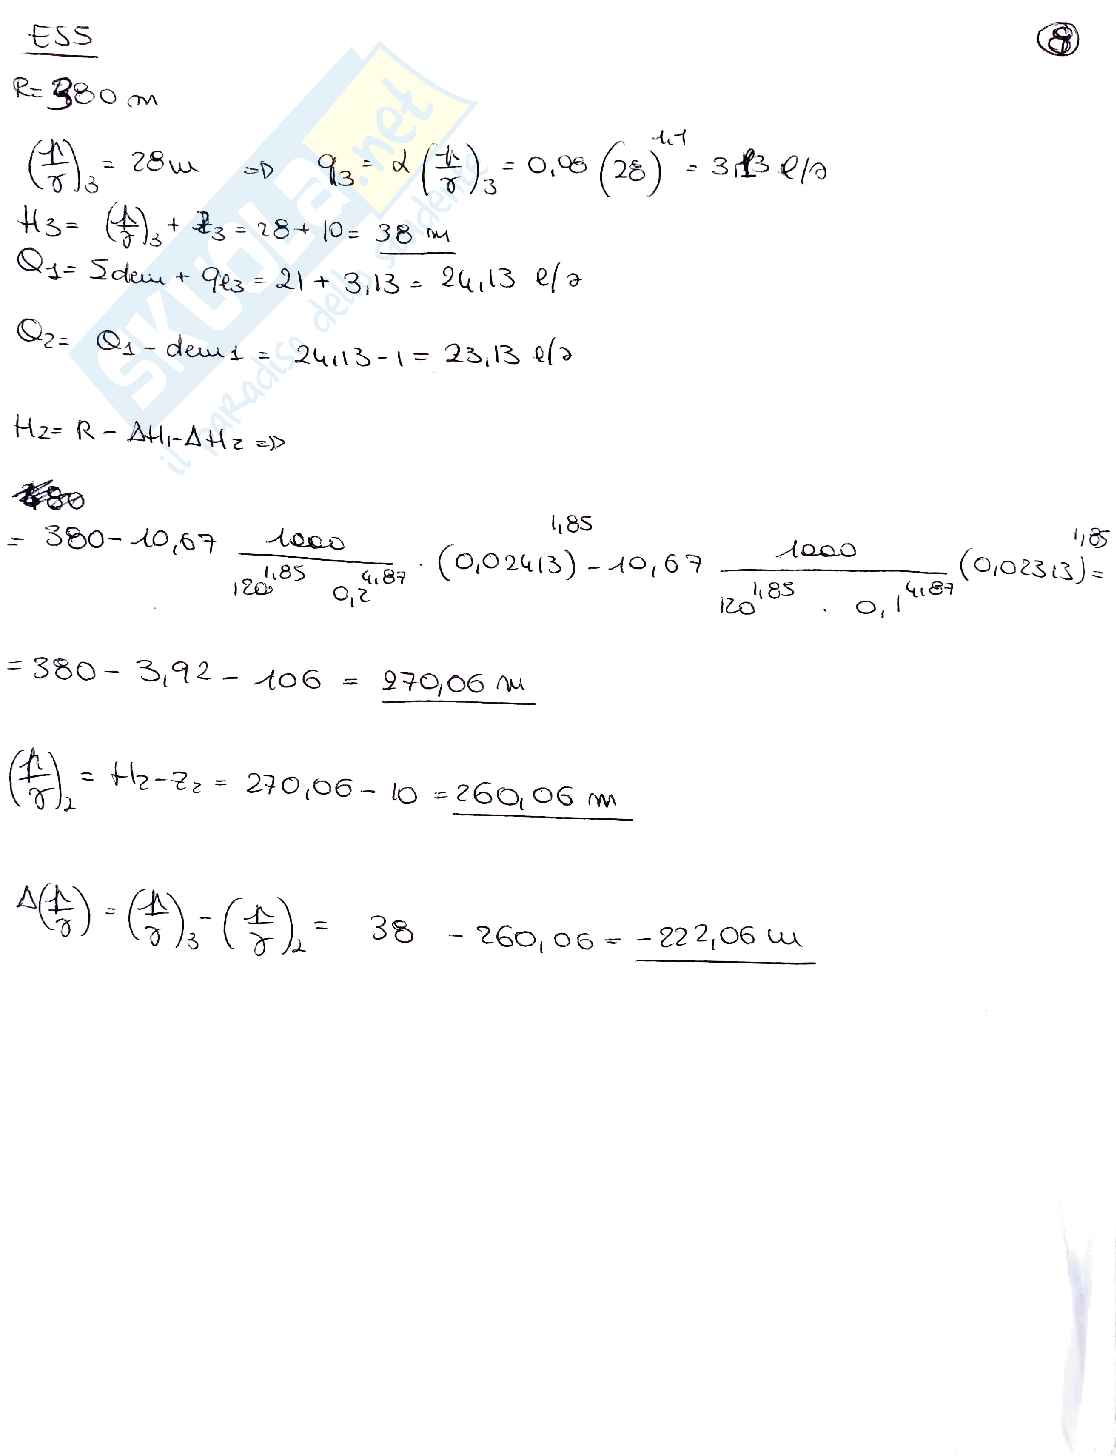 ESS
8
R= 380 m
(p/γ)₃ = 28 m => q₃ = α (p/γ)₃ = 0,08 (28)^1,1 = 3,13 l/s
H3 = (p/γ)₃ + z₃ = 28 + 10 = 38 m
Q1 = Σdem + qe3 = 21 + 3,13 = 24,13 l/s
Q2 = Q1 - dem1 = 24,13 - 1 = 23,13 l/s
H2 = R - ΔH1 - ΔH2 =>
= 380 - 10,67 1000/(120^1,85 0,2^4,87) · (0,02413)^1,85 - 10,67 1000/(120^1,85 · 0,1^4,87) (0,02313)^1,85 =
= 380 - 3,92 - 106 = 270,06 m
(p/γ)₂ = H2 - z2 = 270,06 - 10 = 260,06 m
Δ(p/γ) = (p/γ)₃ - (p/γ)₂ = 38 - 260,06 = -222,06 m
SKUOLA.net
il paradiso dello studente